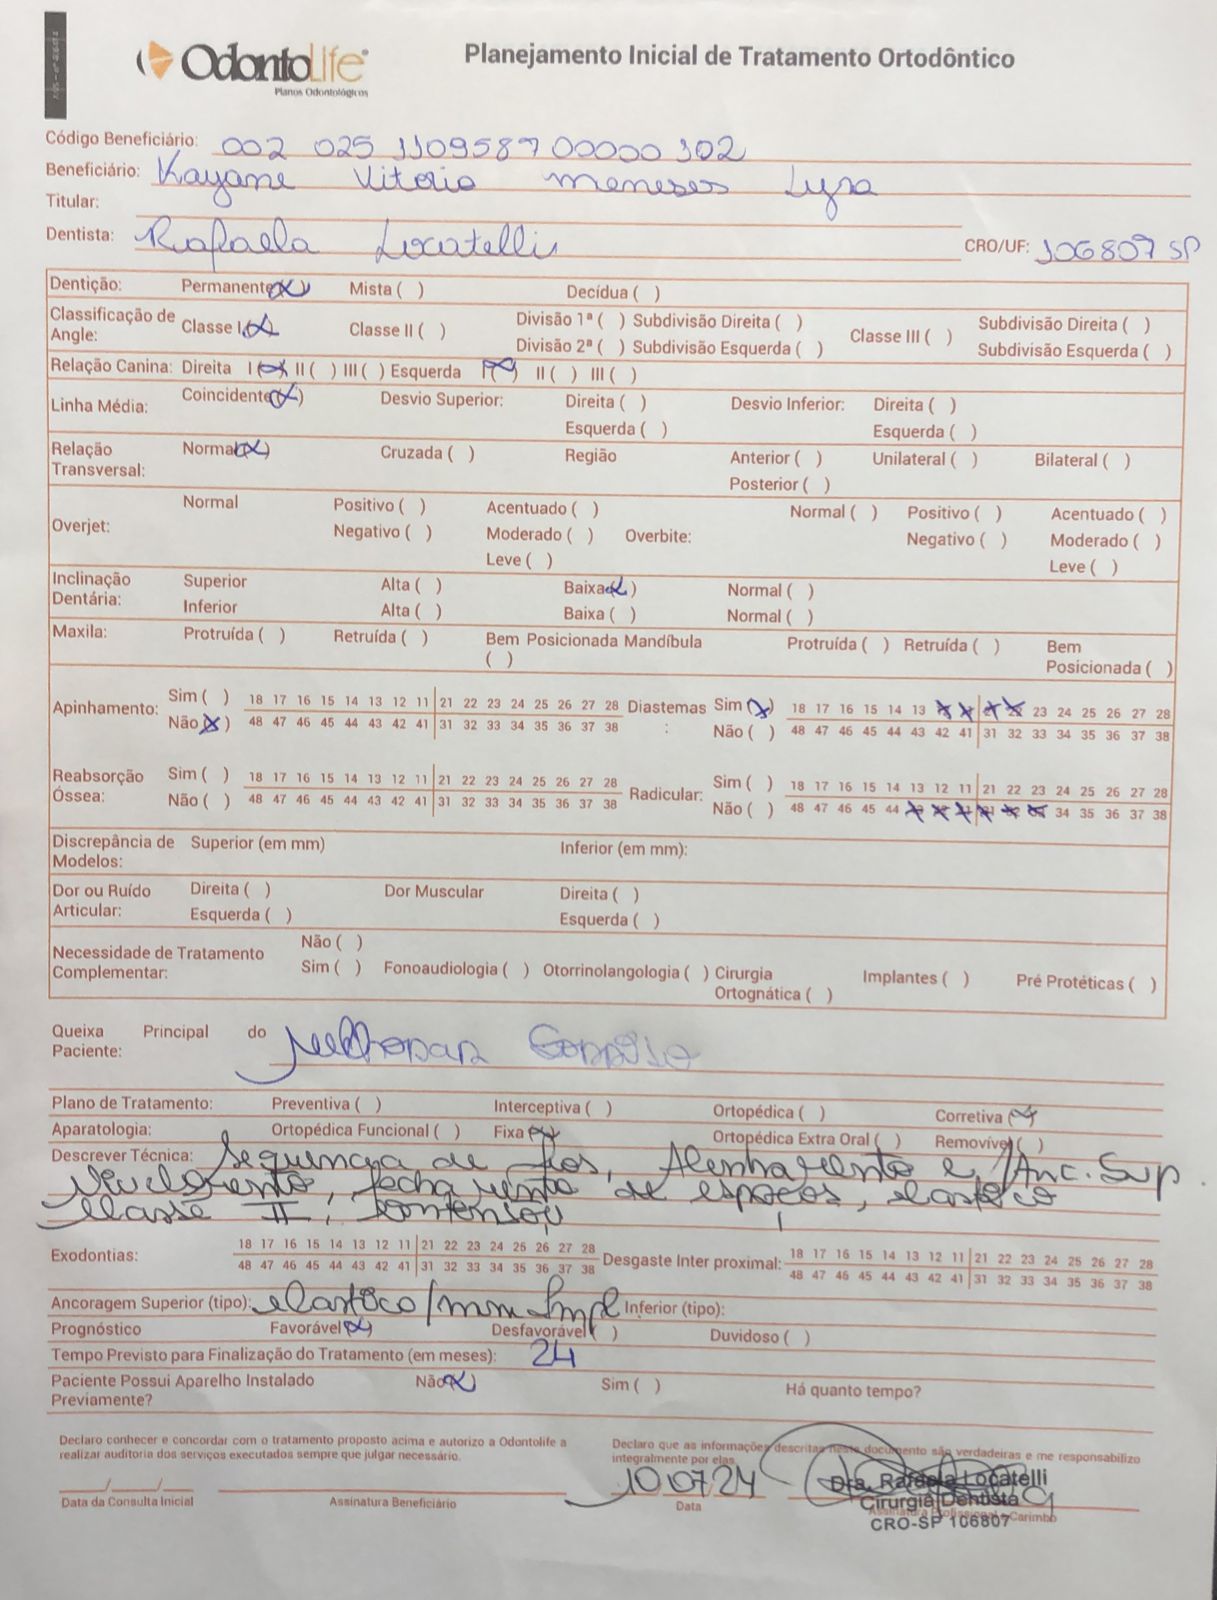 OdontoLife
Planos Odontológicos
Planejamento Inicial de Tratamento Ortodôntico
Código Beneficiário: 002 025 1109587 00000 102
Beneficiário: Kayane Vitoria meneses Lyra
Titular:
Dentista: Rafaela Locatelli CRO/UF: 106807 SP
Dentição: Permanente (x) Mista ( ) Decídua ( )
Classificação de Angle: Classe I (x) Classe II ( ) Divisão 1ª ( ) Subdivisão Direita ( ) Classe III ( ) Subdivisão Direita ( )
Divisão 2ª ( ) Subdivisão Esquerda ( ) Subdivisão Esquerda ( )
Relação Canina: Direita I (x) II ( ) III ( ) Esquerda I (x) II ( ) III ( )
Linha Média: Coincidente (x) Desvio Superior: Direita ( ) Desvio Inferior: Direita ( )
Esquerda ( ) Esquerda ( )
Relação Transversal: Normal (x) Cruzada ( ) Região Anterior ( ) Unilateral ( ) Bilateral ( )
Posterior ( )
Overjet: Normal Positivo ( ) Acentuado ( ) Overbite: Normal ( ) Positivo ( ) Acentuado ( )
Negativo ( ) Moderado ( ) Negativo ( ) Moderado ( )
Leve ( ) Leve ( )
Inclinação Dentária: Superior Alta ( ) Baixa (x) Normal ( )
Inferior Alta ( ) Baixa ( ) Normal ( )
Maxila: Protruída ( ) Retruída ( ) Bem Posicionada ( ) Mandíbula Protruída ( ) Retruída ( ) Bem Posicionada ( )
Apinhamento: Sim ( ) 18 17 16 15 14 13 12 11 21 22 23 24 25 26 27 28 Diastemas: Sim (x) 18 17 16 15 14 13 x x x x 23 24 25 26 27 28
Não (x) 48 47 46 45 44 43 42 41 31 32 33 34 35 36 37 38 Não ( ) 48 47 46 45 44 43 42 41 31 32 33 34 35 36 37 38
Reabsorção Óssea: Sim ( ) 18 17 16 15 14 13 12 11 21 22 23 24 25 26 27 28 Radicular: Sim ( ) 18 17 16 15 14 13 12 11 21 22 23 24 25 26 27 28
Não ( ) 48 47 46 45 44 43 42 41 31 32 33 34 35 36 37 38 Não ( ) 48 47 46 45 44 x x x x x x 34 35 36 37 38
Discrepância de Modelos: Superior (em mm) Inferior (em mm):
Dor ou Ruído Articular: Direita ( ) Dor Muscular Direita ( )
Esquerda ( ) Esquerda ( )
Necessidade de Tratamento Complementar: Não ( )
Sim ( ) Fonoaudiologia ( ) Otorrinolangologia ( ) Cirurgia Ortognática ( ) Implantes ( ) Pré Protéticas ( )
Queixa Principal do Paciente: Melhorar Sorriso
Plano de Tratamento: Preventiva ( ) Interceptiva ( ) Ortopédica ( ) Corretiva (x)
Aparatologia: Ortopédica Funcional ( ) Fixa (x) Ortopédica Extra Oral ( ) Removível ( )
Descrever Técnica: Sequencia de fios, Alinhamento e /Anc. Sup.
Nivelamento, fechamento de espaços, elastico
classe II, contensao
Exodontias: 18 17 16 15 14 13 12 11 21 22 23 24 25 26 27 28 Desgaste Inter proximal: 18 17 16 15 14 13 12 11 21 22 23 24 25 26 27 28
48 47 46 45 44 43 42 41 31 32 33 34 35 36 37 38 48 47 46 45 44 43 42 41 31 32 33 34 35 36 37 38
Ancoragem Superior (tipo): elastico/mini Impl Inferior (tipo):
Prognóstico Favorável (x) Desfavorável ( ) Duvidoso ( )
Tempo Previsto para Finalização do Tratamento (em meses): 24
Paciente Possui Aparelho Instalado Previamente? Não (x) Sim ( ) Há quanto tempo?
Declaro conhecer e concordar com o tratamento proposto acima e autorizo a Odontolife a
realizar auditoria dos serviços executados sempre que julgar necessário.
Declaro que as informações descritas neste documento são verdadeiras e me responsabilizo
integralmente por elas.
__/__/__ 10 07 24
Data da Consulta Inicial Assinatura Beneficiário Data Assinatura Profissional e Carimbo
Dra. Rafaela Locatelli
Cirurgiã Dentista
CRO-SP 106807